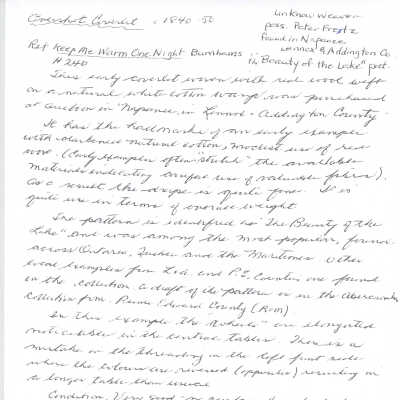 Overshot Coverlet c. 1840
unknown weaver
poss. Peter Fretz
found in Napanee
Lennox & Addington Co.
Ref Keep Me Warm One Night Burnhams "Beauty of the Lake" patt.
# 240
This early coverlet woven with red wool weft
on a natural white cotton warp was purchased
at auction in Napanee, in Lennox - Addington County.
It has the hallmarks of an early example
with natural cotton, modest use of red
wool. (Early examples often "stretch" the available
materials indicating careful use of valuable fabrics).
As a result the drape is quite fine. It is
quite in terms of overall weight.
The pattern is identified as "The Beauty of the
Lake" and was among the most popular, found
across Ontario, Quebec and the Maritimes. Other
local examples from L&A and P.E. Counties are found
in the collection. A draft of the pattern is in the
collection from Prince Edward County (ROM)
In this example the "wheels" are elongated
noticeable in the central tables. There is a
mistake in the threading in the left first side
where the blocks are reversed (opposite) resulting in
a longer table than usual
Condition. Very good - no